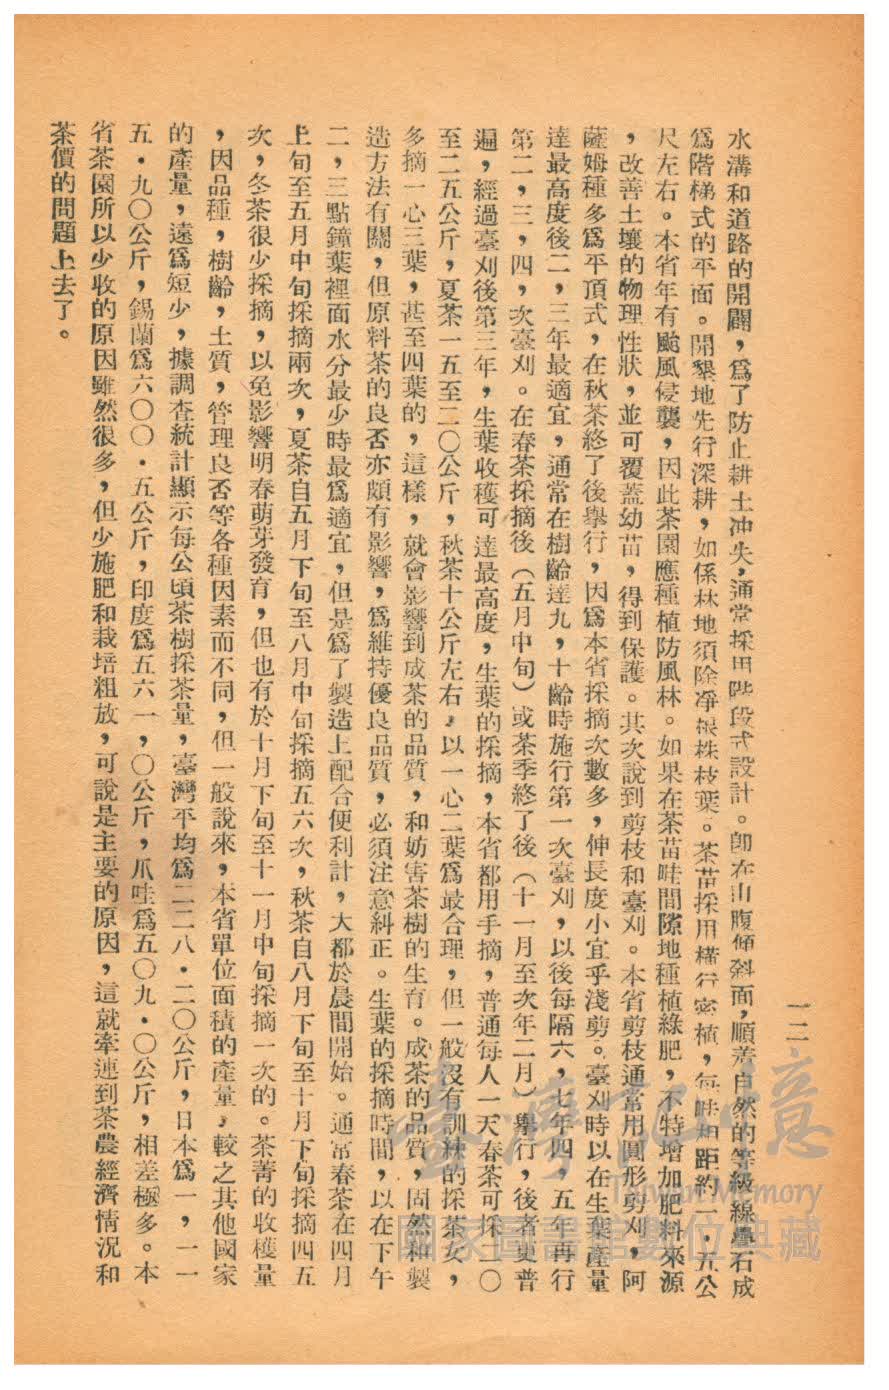 一二
水溝和道路的開闢，爲了防止耕土冲失，通常採用階段式設計。卽在山腹傾斜面，順着自然的等級線疊石成
爲階梯式的平面。開墾地先行深耕，如係林地須除淨根株枝葉。茶苗採用橫行密植，每畦相距約一．五公
尺左右。本省年有颱風侵襲，因此茶園應種植防風林。如果在茶苗畦間隙地種植綠肥，不特增加肥料來源
，改善土壤的物理性狀，並可覆蓋幼苗，得到保護。其次說到剪枝和臺刈。本省剪枝通常用圓形剪刈，阿
薩姆種多爲平頂式，在秋茶終了後舉行，因爲本省採摘次數多，伸長度小宜乎淺剪。臺刈時以在生葉產量
達最高度後二，三年最適宜，通常在樹齡達九，十齡時施行第一次臺刈，以後每隔六，七年四，五年再行
第二，三，四，次臺刈。在春茶採摘後（五月中旬）或茶季終了後（十一月至次年二月）舉行，後者更普
遍，經過臺刈後第三年，生葉收穫可達最高度，生葉的採摘，本省都用手摘，普通每人一天春茶可採二〇
至二五公斤，夏茶一五至二〇公斤，秋茶十公斤左右，以一心二葉爲最合理，但一般沒有訓練的採茶女，
多摘一心三葉，甚至四葉的，這樣，就會影響到成茶的品質，和妨害茶樹的生育。成茶的品質，固然和製
造方法有關，但原料茶的良否亦頗有影響，爲維持優良品質，必須注意糾正。生葉的採摘時間，以在下午
二，三點鐘葉裡面水分最少時最爲適宜，但是爲了製造上配合便利計，大都於晨間開始。通常春茶在四月
上旬至五月中旬採摘兩次，夏茶自五月下旬至八月中旬採摘五六次，秋茶自八月下旬至十月下旬採摘四五
次，冬茶很少採摘，以免影響明春萌芽發育，但也有於十月下旬至十一月中旬採摘一次的。茶菁的收穫量
，因品種，樹齡，土質，管理良否等各種因素而不同，但一般說來，本省單位面積的產量，較之其他國家
的產量，遠爲短少，據調查統計顯示每公頃茶樹採茶量，臺灣平均爲二二八．二〇公斤，日本爲一，一一
五．九〇公斤，錫蘭爲六〇〇．五公斤，印度爲五六一，〇公斤，爪哇爲五〇九．〇公斤，相差極多。本
省茶園所以少收的原因雖然很多，但少施肥和栽培粗放，可說是主要的原因，這就牽連到茶農經濟情況和
茶價的問題上去了。
臺灣記憶
Taiwan Memory
國家圖書館數位典藏